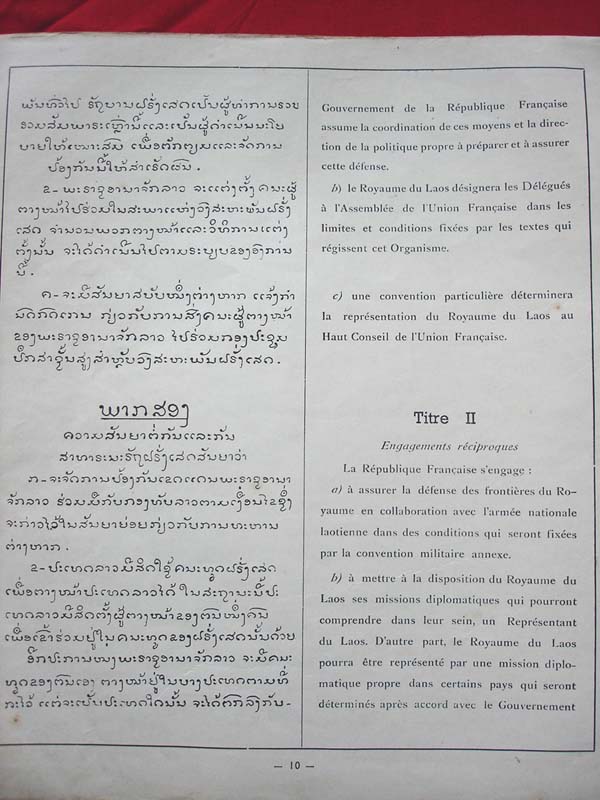 ພັນທົ່ວໄປ ຣັຖບານຝຣັ່ງເສດເປັນຜູ້ທຳການຮວບ
ຮວມສັມພາຣະເຫຼົ່ານີ້ແລະເປັນຜູ້ດຳເນີນນະໂຍ
ບາຍໃຫ້ເໝາະສົມ ເພື່ອຕັກຕຽມແລະຈັດການ
ປ້ອງກັນນີ້ໃຫ້ສຳເຣັດຜົນ .
໒- ພະຣາຊອານາຈັກລາວ ຈະແຕ່ງຕັ້ງ ຄນະຜູ້
ຕາງໜ້າໄປຮ່ວມໃນສະພາແຫ່ງວົງສະຫະພັນຝຣັ່ງ
ເສດ ຈຳນວນພວກຕາງໜ້າແລະວິທີການແຕ່ງ
ຕັ້ງນັ້ນ ຈະໄດ້ດຳເນີນໄປຕາມຣະບຽບຂອງອົງການ
ນີ້ .
ຄ- ຈະມີສັນຍາສບັບໜຶ່ງຕ່າງຫາກ ແຈ້ງກຳ
ນົດກົດເກນ ກ່ຽວກັບການສົ່ງຄນະຜູ້ຕາງໜ້າ
ຂອງພະຣາຊອານາຈັກລາວ ໄປຮ່ວມກອງປະຊຸມ
ປຶກສາຊັ້ນສູງສຳຫຼັບວົງສະຫະພັນຝຣັ່ງເສດ .
ພາກສອງ
ຄວາມສັນຍາຕໍ່ກັນແລະກັນ
ສາທາຣະນະຣັຖຝຣັ່ງເສດສັນຍາວ່າ
ກ- ຈະຈັດການປ້ອງກັນເຂດແດນພະຣາຊອານາ
ຈັກລາວ ຮ່ວມມືກັບກອງທັບລາວຕາມເງື່ອນໄຂຊຶ່ງ
ຈະກ່າວໄວ້ໃນສັນຍາຍ່ອຍກ່ຽວກັບການທະຫານ
ຕ່າງຫາກ .
໒- ປະເທດລາວມີສິດໃຊ້ ຄນະທູດຝຣັ່ງເສດ
ເພື່ອຕາງໜ້າປະເທດລາວໄດ້ ໃນສະຖານະນີ້ປະ
ເທດລາວມີສິດຕັ້ງຜູ້ຕາງໜ້າຂອງຕົນໜຶ່ງຄົນ
ເພື່ອເຂົ້າຮ່ວມຢູ່ໃນຄນະທູດຂອງຝຣັ່ງເສດນັ້ນດ້ວຍ
ອີກປະການໜຶ່ງພະຣາຊອານາຈັກລາວ ຈະມີຄນະ
ທູດຂອງຕົນເອງ ຕາງໜ້າຢູ່ໃນບາງປະເທດຕາມທີ່
ກະໄວ້ ແຕ່ຈະເປັນປະເທດໃດນັ້ນ ຈະໄດ້ຕົກລົງກັນ-
Gouvernement de la République Française
assume la coordination de ces moyens et la direc-
tion de la politique propre à préparer et à assurer
cette défense.
b) le Royaume du Laos désignera les Délégués
à l'Assemblée de l'Union Française dans les
limites et conditions fixées par les textes qui
régissent cet Organisme.
c) une convention particulière déterminera
la représentation du Royaume du Laos au
Haut Conseil de l'Union Française.
Titre II
Engagements réciproques
La République Française s'engage :
a) à assurer la défense des frontières du Ro-
yaume en collaboration avec l'armée nationale
laotienne dans des conditions qui seront fixées
par la convention militaire annexe.
b) à mettre à la disposition du Royaume du
Laos ses missions diplomatiques qui pourront
comprendre dans leur sein, un Représentant
du Laos. D'autre part, le Royaume du Laos
pourra être représenté par une mission diplo-
matique propre dans certains pays qui seront
déterminés après accord avec le Gouvernement
— 10 —